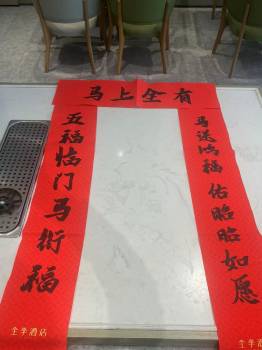 马上全有
马送鸿福佑昭昭如愿
五福临门马衔福
全季酒店
全季酒店